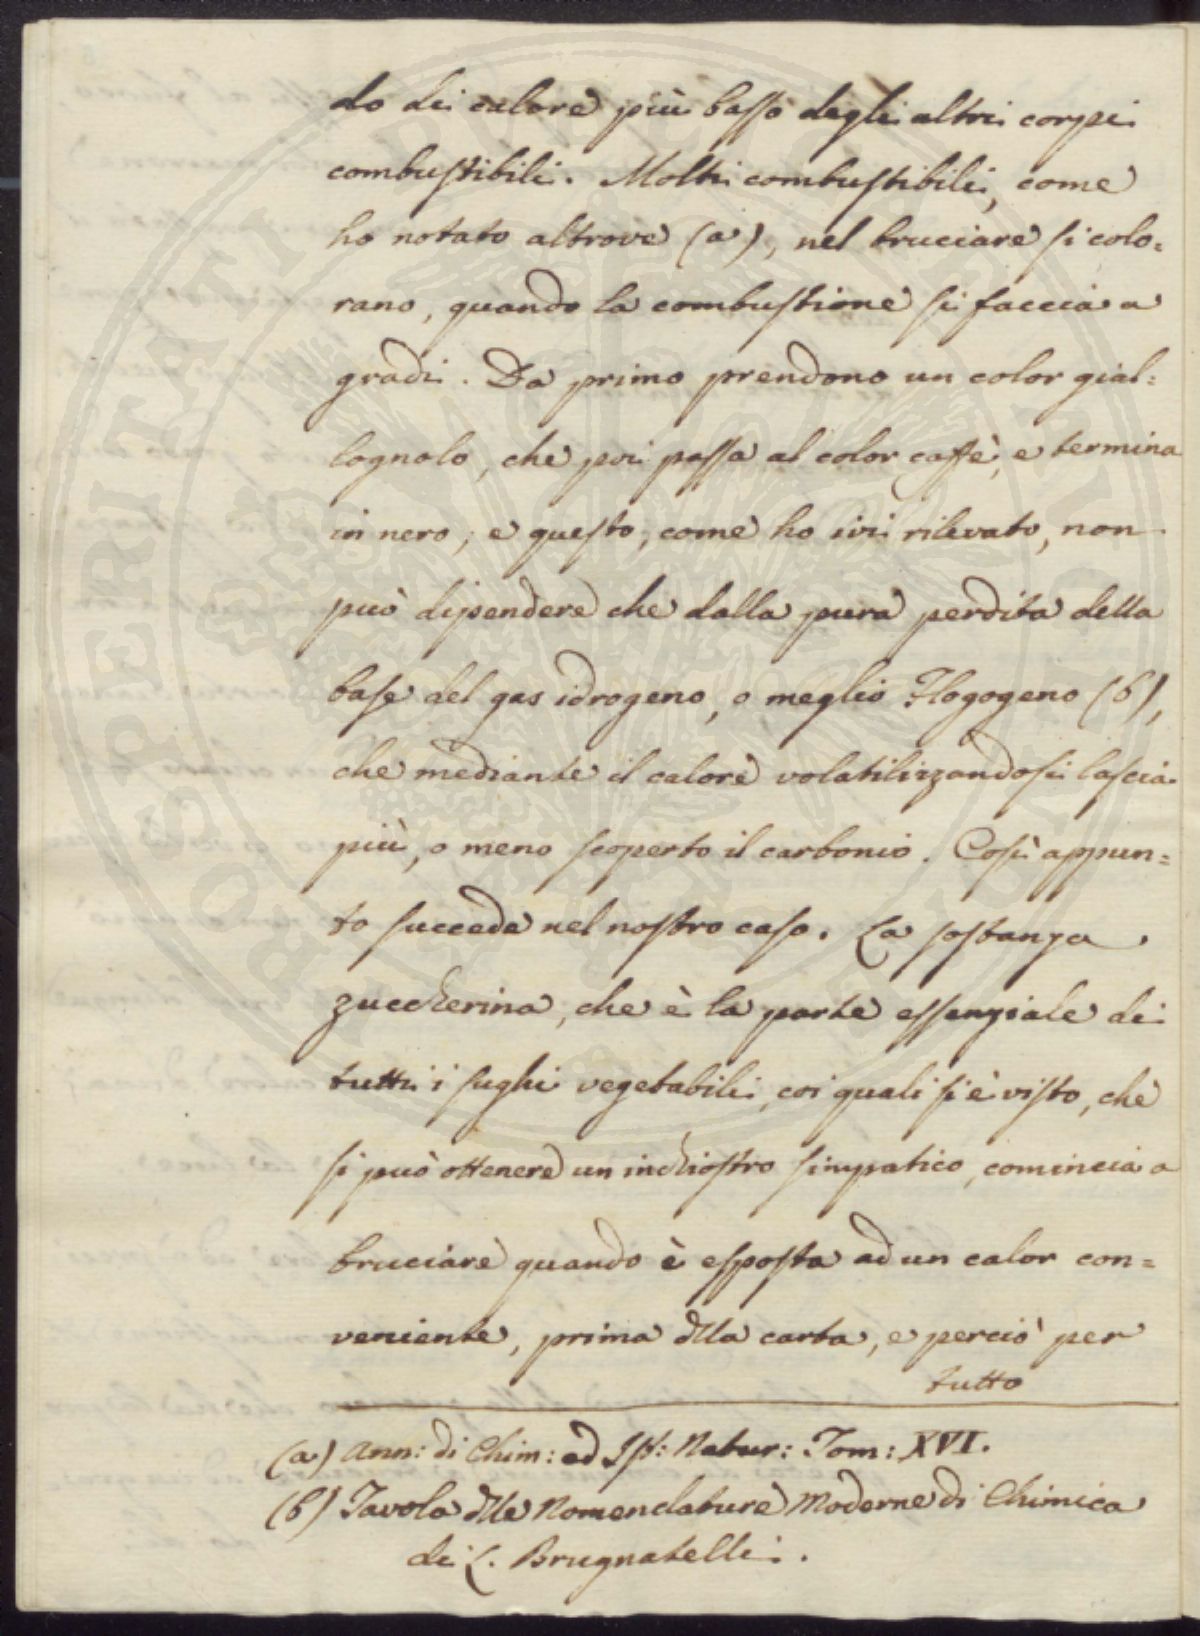 do di calore più basso degli altri corpi
combustibili. Molti combustibili, come
ho notato altrove (a), nel bruciare si colo=
rano, quando la combustione si faccia a
gradi. Da primo prendono un color gial=
lognolo, che poi passa al color caffè, e termina
in nero; e questo, come ho ivi rilevato, non
può dipendere che dalla pura perdita della
base del gas idrogeno, o meglio Flogogeno (b),
che mediante il calore volatilizzandosi lascia
più, o meno scoperto il carbonio. Così appun=
to succede nel nostro caso. La sostanza
zuccherina, che è la parte essenziale di
tutti i sughi vegetabili, coi quali si è visto, che
si può ottenere un inchiostro simpatico, comincia a
bruciare quando è esposta ad un calor con=
veniente, prima dlla carta, e perciò per
tutto
(a) Ann: di Chim: ed Ist: Natur: Tom: XVI.
(b) Tavola dlle Nomenclature Moderne di Chimica
di L. Brugnatelli.
PROSPERITATI PUBLICAE